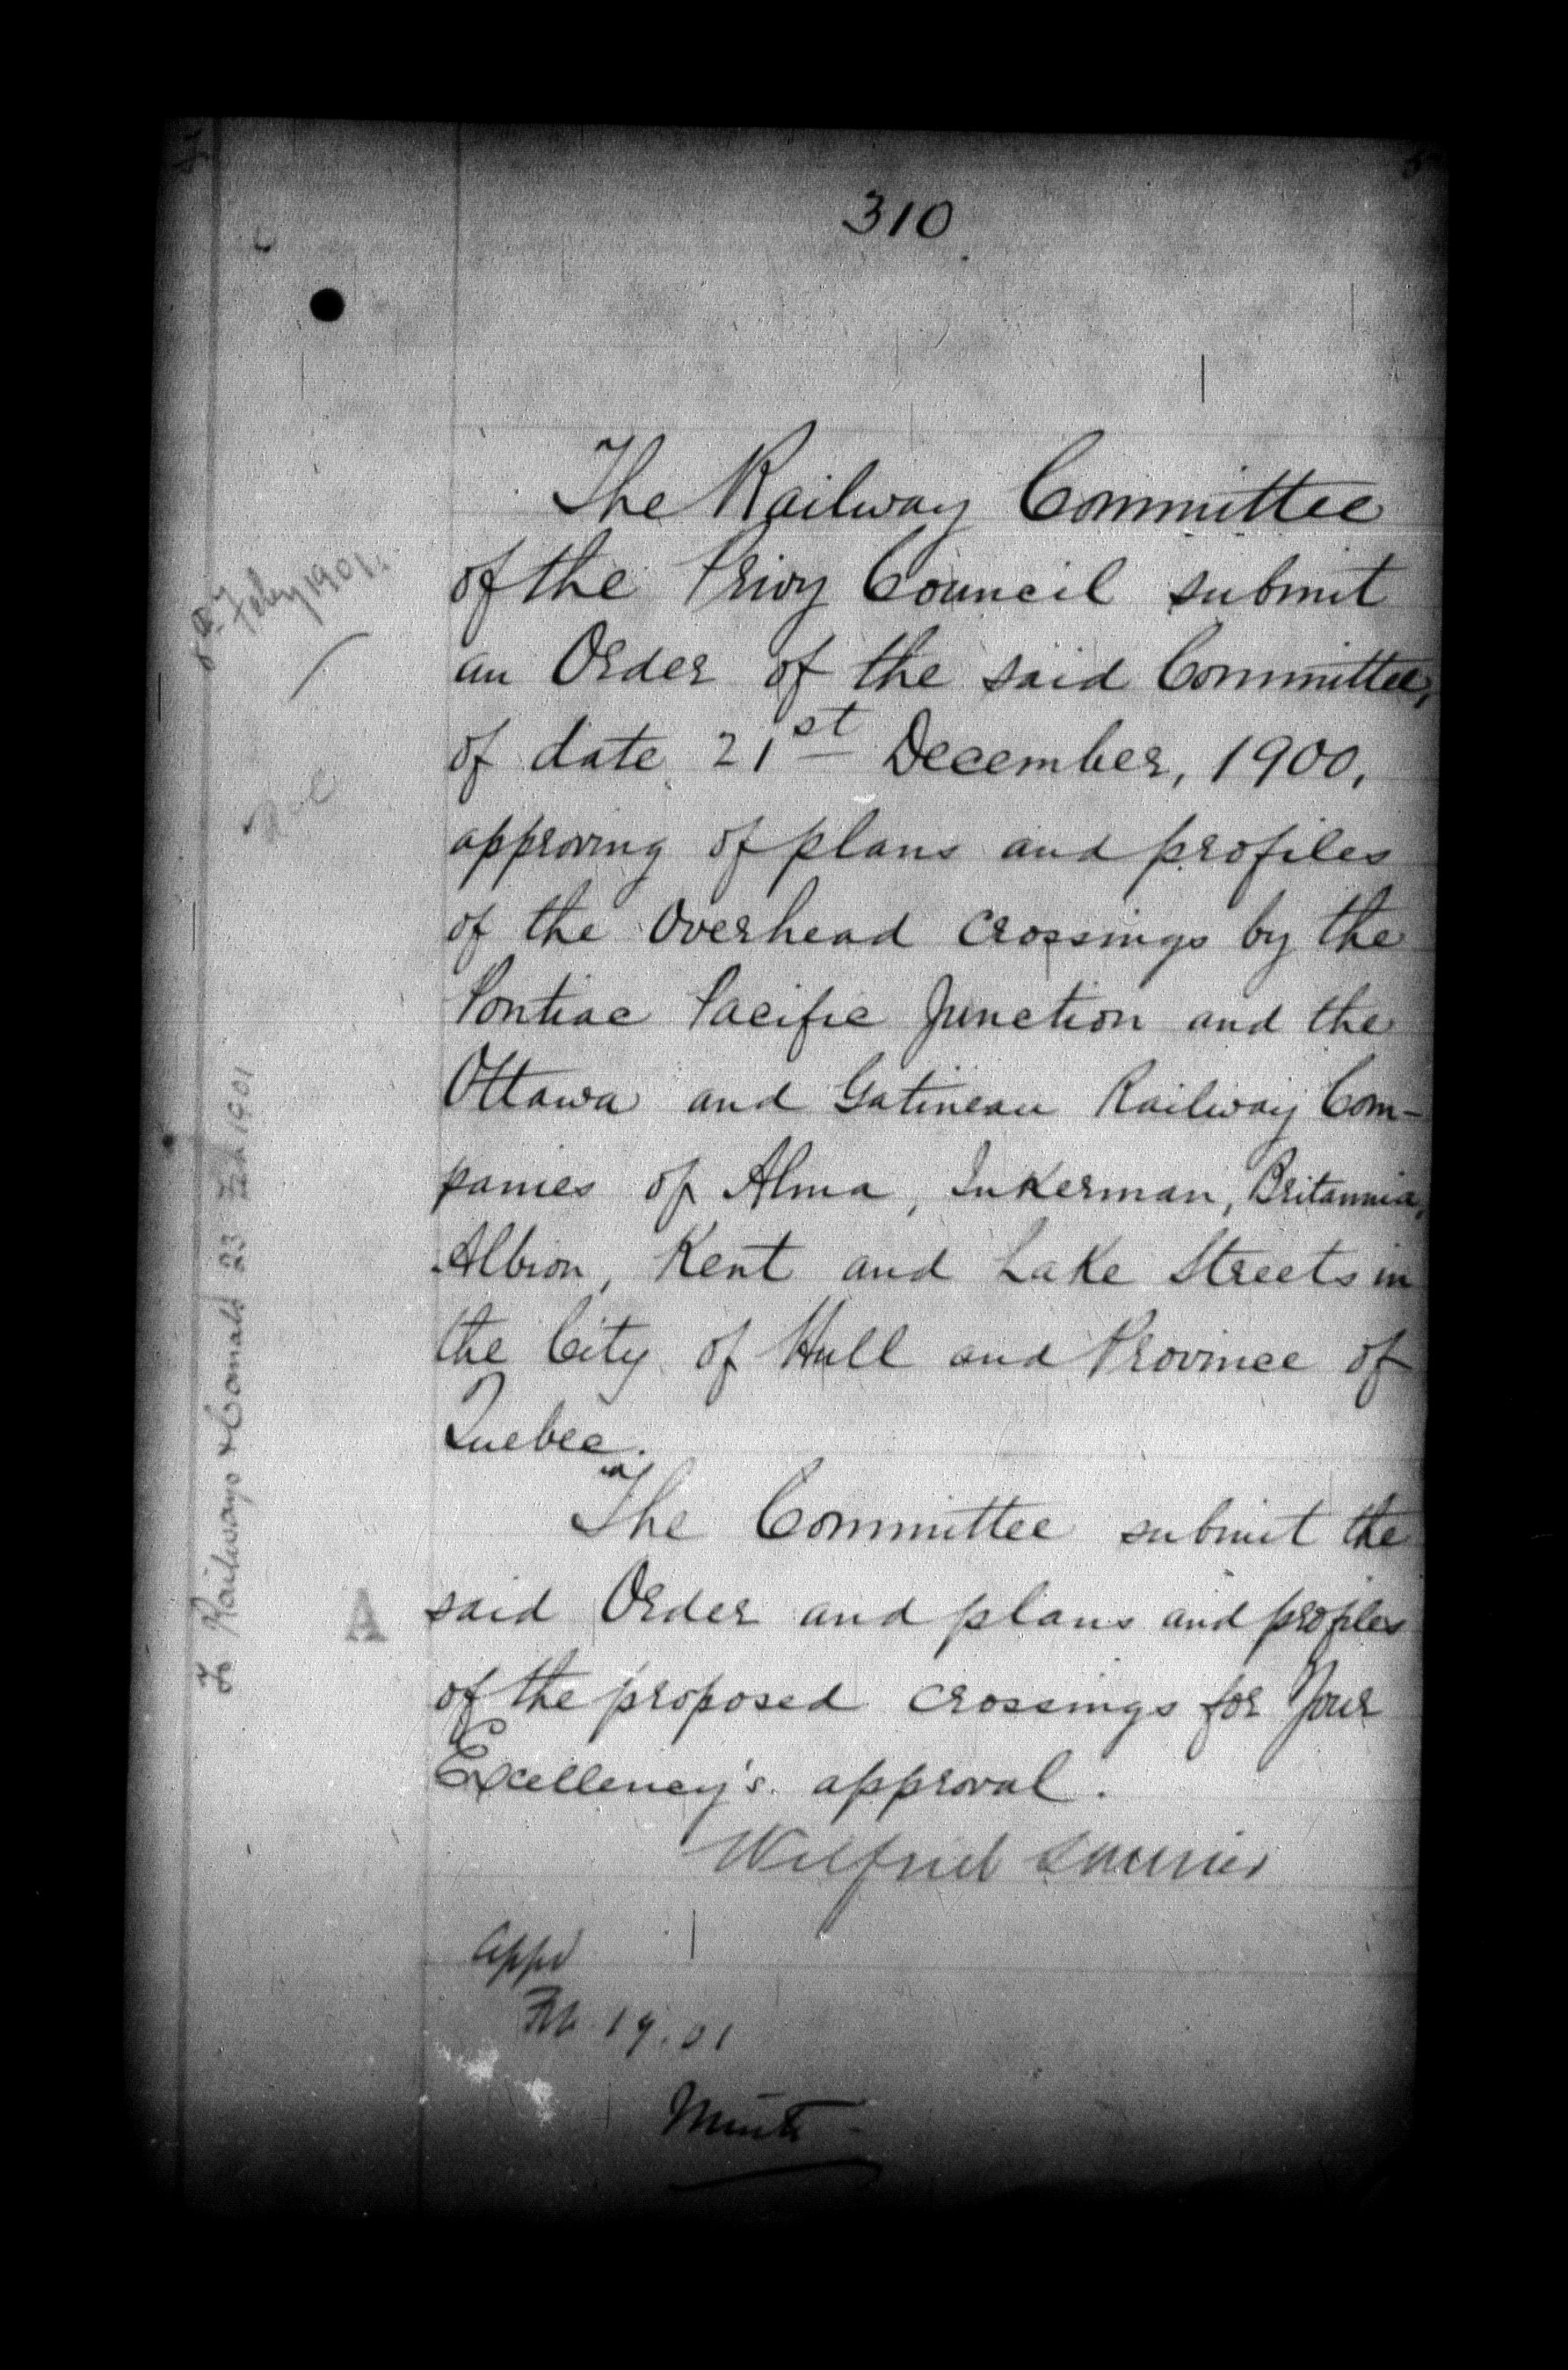 310
The Railway Committee
of the Privy Council submit
an Order of the said Committee,
of date 21st December, 1900,
approving of plans and profiles
of the Overhead crossings by the
Pontiac Pacific Junction and the
Ottawa and Gatineau Railway Com-
panies of Alma, Inkerman, Britannia,
Albion, Kent and Lake Streets in
the City of Hull and Province of
Quebec.
The Committee submit the
said Order and plans and profiles
of the proposed crossings for Your
Excellency's approval.
Wilfrid Laurier
appd
Feb. 19. 01
Minto
Feby 1901.
To Railways & Canals 23 Feb 1901
A